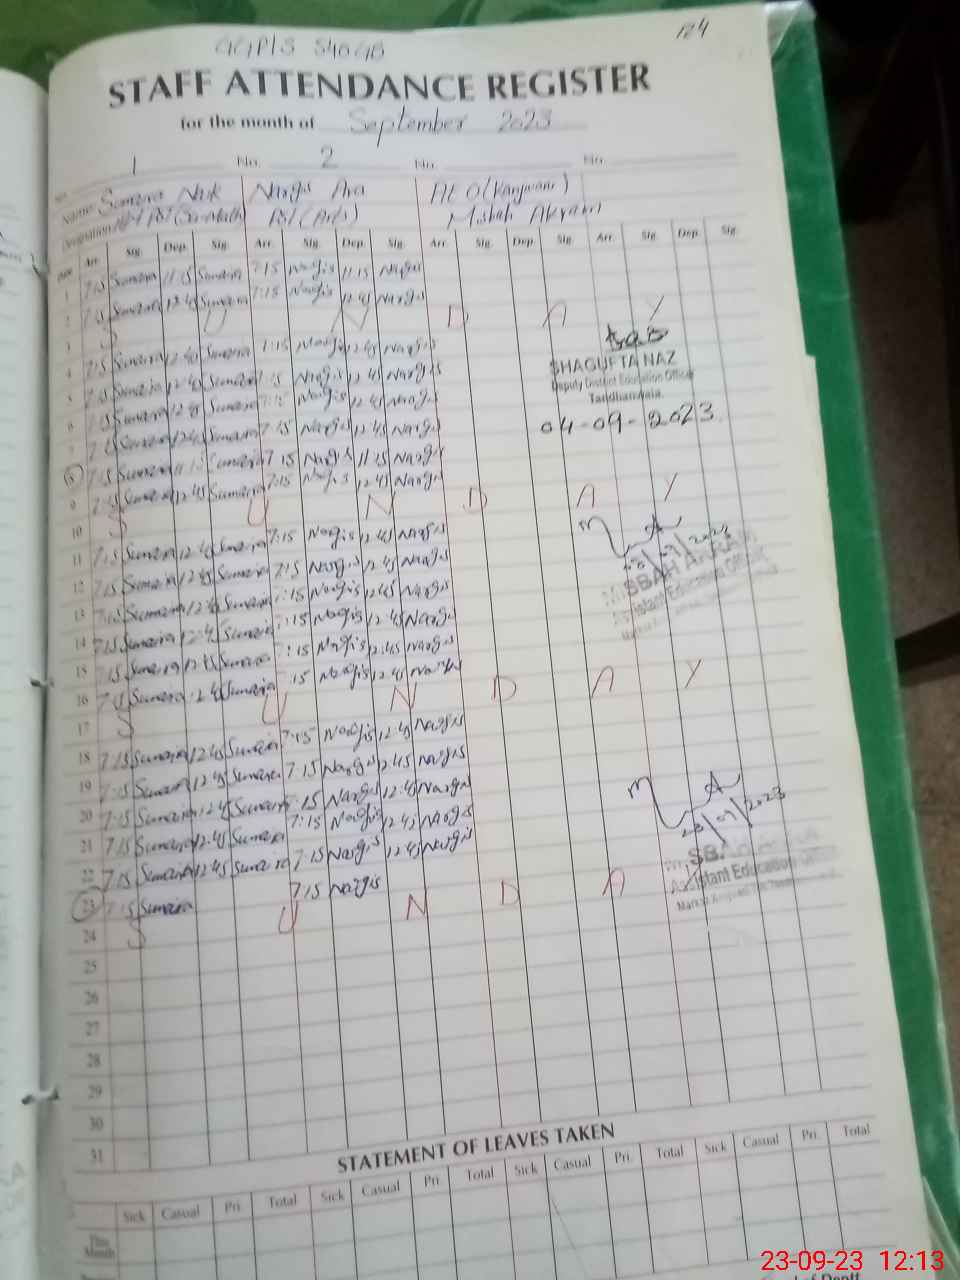 GGPS 540 GB
124
STAFF ATTENDANCE REGISTER
for the month of September 2023
1 No. 2 No. No.
Name Sumaira Nargis Ara AEO (Kanjwani)
Designation PST (Sci-Math) PST (Arts) Misbah Akram
Date Arr. Sig. Dep. Sig. Arr. Sig. Dep. Sig. Arr. Sig. Dep. Sig. Arr. Sig. Dep. Sig.
1 7:15 Sumaira 11:15 Sumaira 7:15 Nargis 11:15 Nargis
2 7:15 Sumaira 12:45 Sumaira 7:15 Nargis 12:45 Nargis
3 S U N D A Y
4 7:15 Sumaira 12:45 Sumaira 7:15 Nargis 12:45 Nargis
SHAGUFTA NAZ
5 7:15 Sumaira 12:45 Sumaira 7:15 Nargis 12:45 Nargis
Deputy District Education Officer
Tandlianwala.
6 7:15 Sumaira 12:45 Sumaira 7:15 Nargis 12:45 Nargis
04-09-2023.
7 7:15 Sumaira 12:45 Sumaira 7:15 Nargis 12:45 Nargis
8 7:15 Sumaira 11:15 Sumaira 7:15 Nargis 11:15 Nargis
9 7:15 Sumaira 12:45 Sumaira 7:15 Nargis 12:45 Nargis
10 S U N D A Y
11 7:15 Sumaira 12:45 Sumaira 7:15 Nargis 12:45 Nargis
12 7:15 Sumaira 12:45 Sumaira 7:15 Nargis 12:45 Nargis
MISBAH AKRAM
13 7:15 Sumaira 12:45 Sumaira 7:15 Nargis 12:45 Nargis
Assistant Education Officer
14 7:15 Sumaira 12:45 Sumaira 7:15 Nargis 12:45 Nargis
15 7:15 Sumaira 12:45 Sumaira 7:15 Nargis 12:45 Nargis
16 7:15 Sumaira 12:45 Sumaira 7:15 Nargis 12:45 Nargis
17 S U N D A Y
18 7:15 Sumaira 12:45 Sumaira 7:15 Nargis 12:45 Nargis
19 7:15 Sumaira 12:45 Sumaira 7:15 Nargis 12:45 Nargis
20 7:15 Sumaira 12:45 Sumaira 7:15 Nargis 12:45 Nargis
21 7:15 Sumaira 12:45 Sumaira 7:15 Nargis 12:45 Nargis
22 7:15 Sumaira 12:45 Sumaira 7:15 Nargis 12:45 Nargis
Assistant Education
23 7:15 Sumaira 7:15 Nargis
24 S U N D A Y
25
26
27
28
29
30
31
STATEMENT OF LEAVES TAKEN
Sick Casual Pri. Total Sick Casual Pri. Total Sick Casual Pri. Total Sick Casual Pri. Total
This Month
23-09-23 12:13